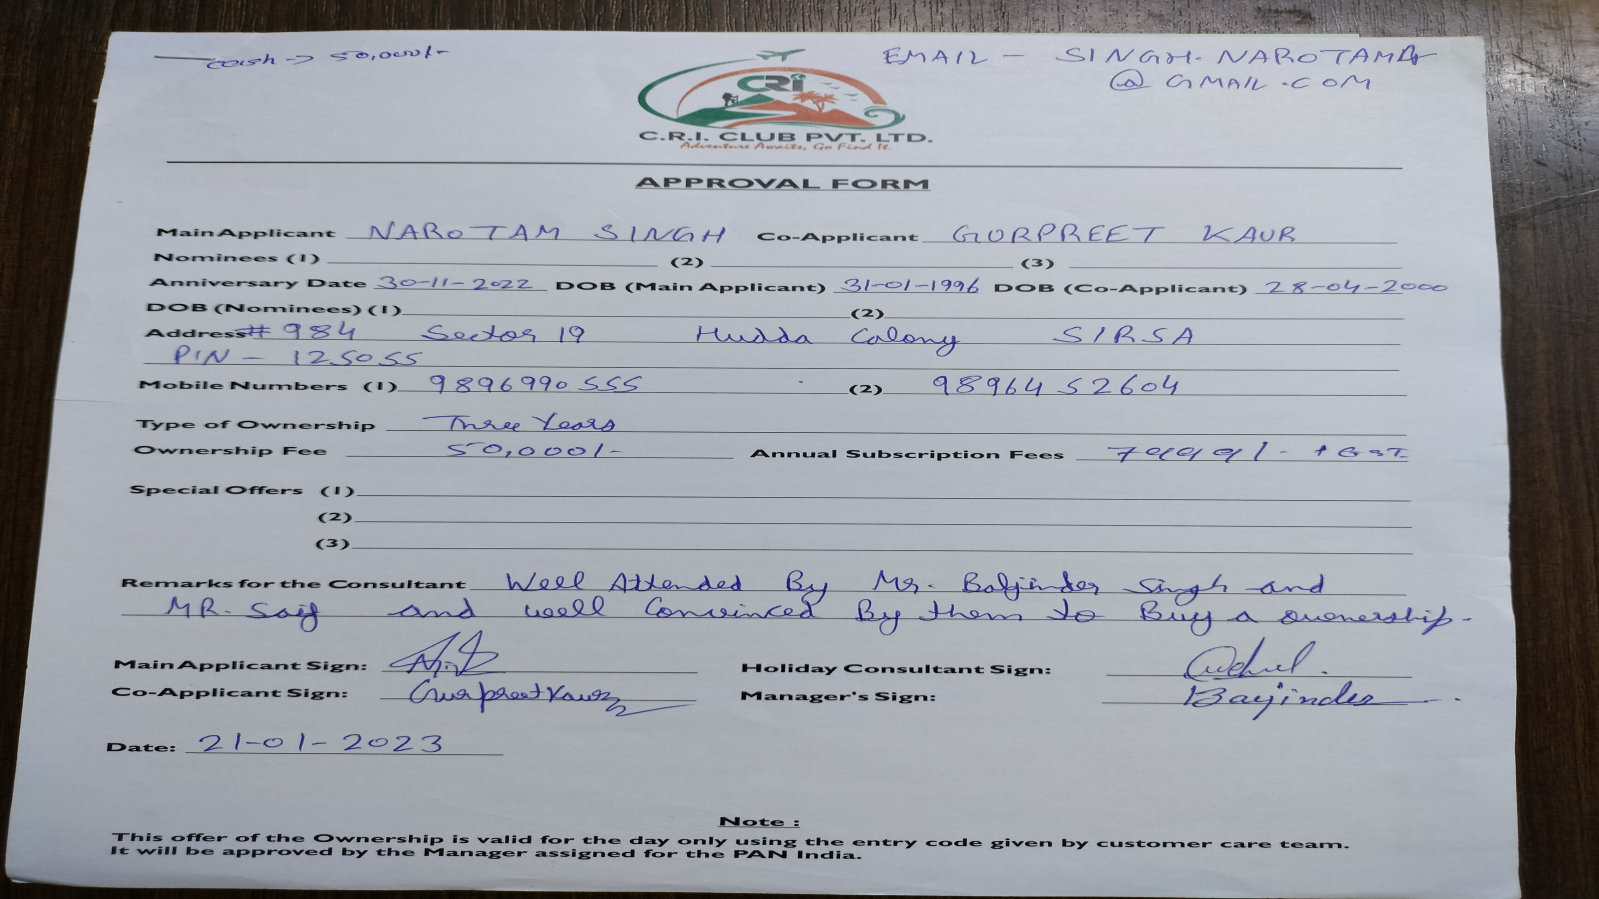 cash -> 50,000/-
EMAIL - SINGH.NAROTAM
@GMAIL.COM
CRI
C.R.I. CLUB PVT. LTD.
Adventure Awaits, Go Find It
APPROVAL FORM
Main Applicant NAROTAM SINGH Co-Applicant GURPREET KAUR
Nominees (1) (2) (3)
Anniversary Date 30-11-2022 DOB (Main Applicant) 31-01-1996 DOB (Co-Applicant) 28-04-2000
DOB (Nominees) (1) (2)
Address # 984 Sector 19 Hudda Colony SIRSA
PIN - 125055
Mobile Numbers (1) 9896990555 (2) 9896452604
Type of Ownership Three Years
Ownership Fee 50,000/- Annual Subscription Fees 7999/- + GST.
Special Offers (1)
(2)
(3)
Remarks for the Consultant Well Attended By Mr. Baljinder Singh and
MR. Saif and well Convinced By them to Buy a ownership.
Main Applicant Sign: Holiday Consultant Sign:
Co-Applicant Sign: Gurpreet Kaur Manager's Sign: Bayjinder
Date: 21-01-2023
Note :
This offer of the Ownership is valid for the day only using the entry code given by customer care team.
It will be approved by the Manager assigned for the PAN India.